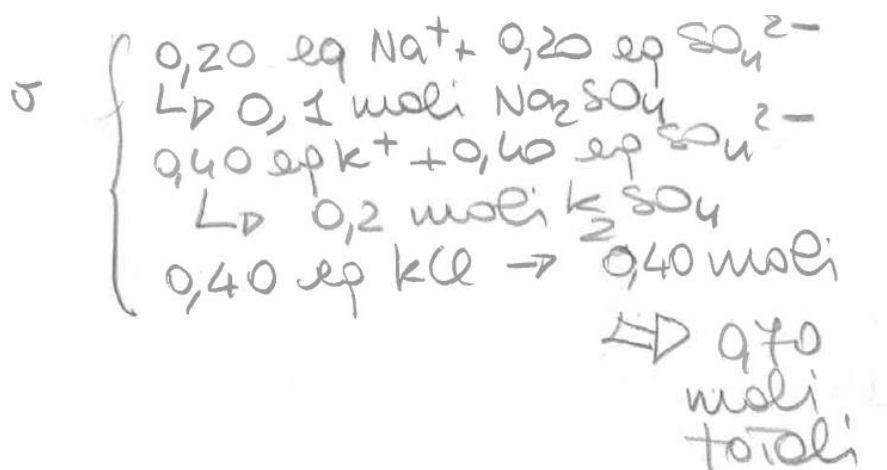 o { 0,20 eq Na⁺ + 0,20 eq SO₄²⁻
↳ 0,1 moli Na₂SO₄
0,40 eq K⁺ + 0,40 eq SO₄²⁻
↳ 0,2 moli K₂SO₄
0,40 eq KCl → 0,40 moli
⇒ 0,70
moli
totali